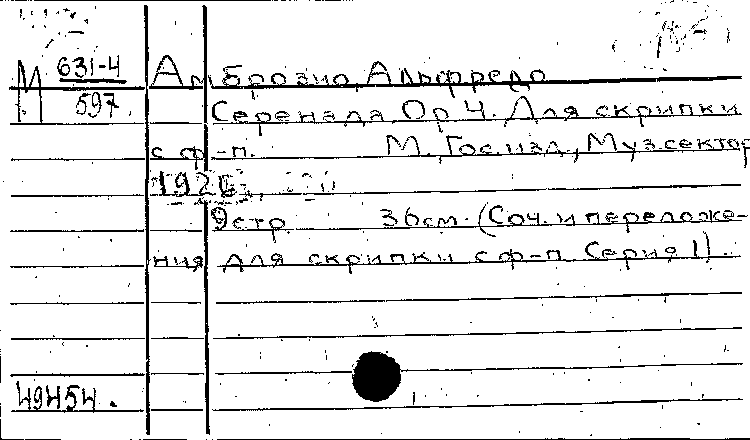 М 631-4 Амброзио, Альфредо
597. Серенада. Ор 4. Для скрипки
с ф-п. М., Госизд., Музсектор
9 стр 36 см. (Соч. и переложе-
ния для скрипки с ф-п Серия 1).
49454.